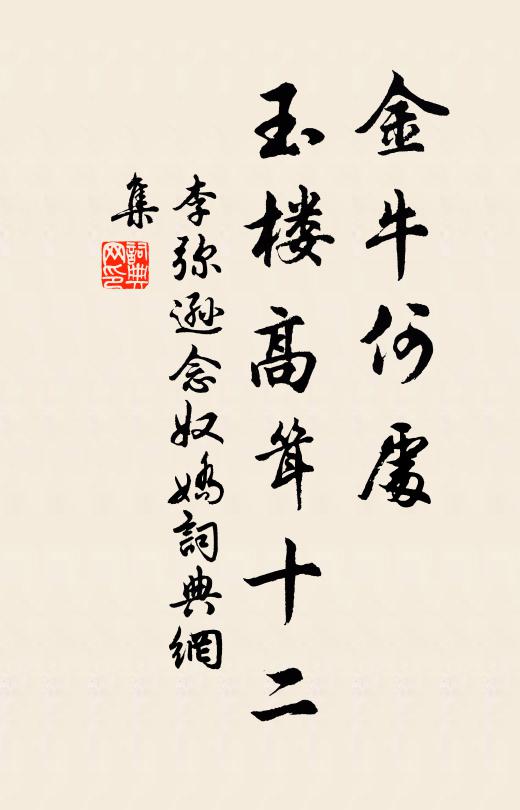 金牛何處
玉楼高耸十二
李弥遜念奴嬌詞典網
集
詞典
网印